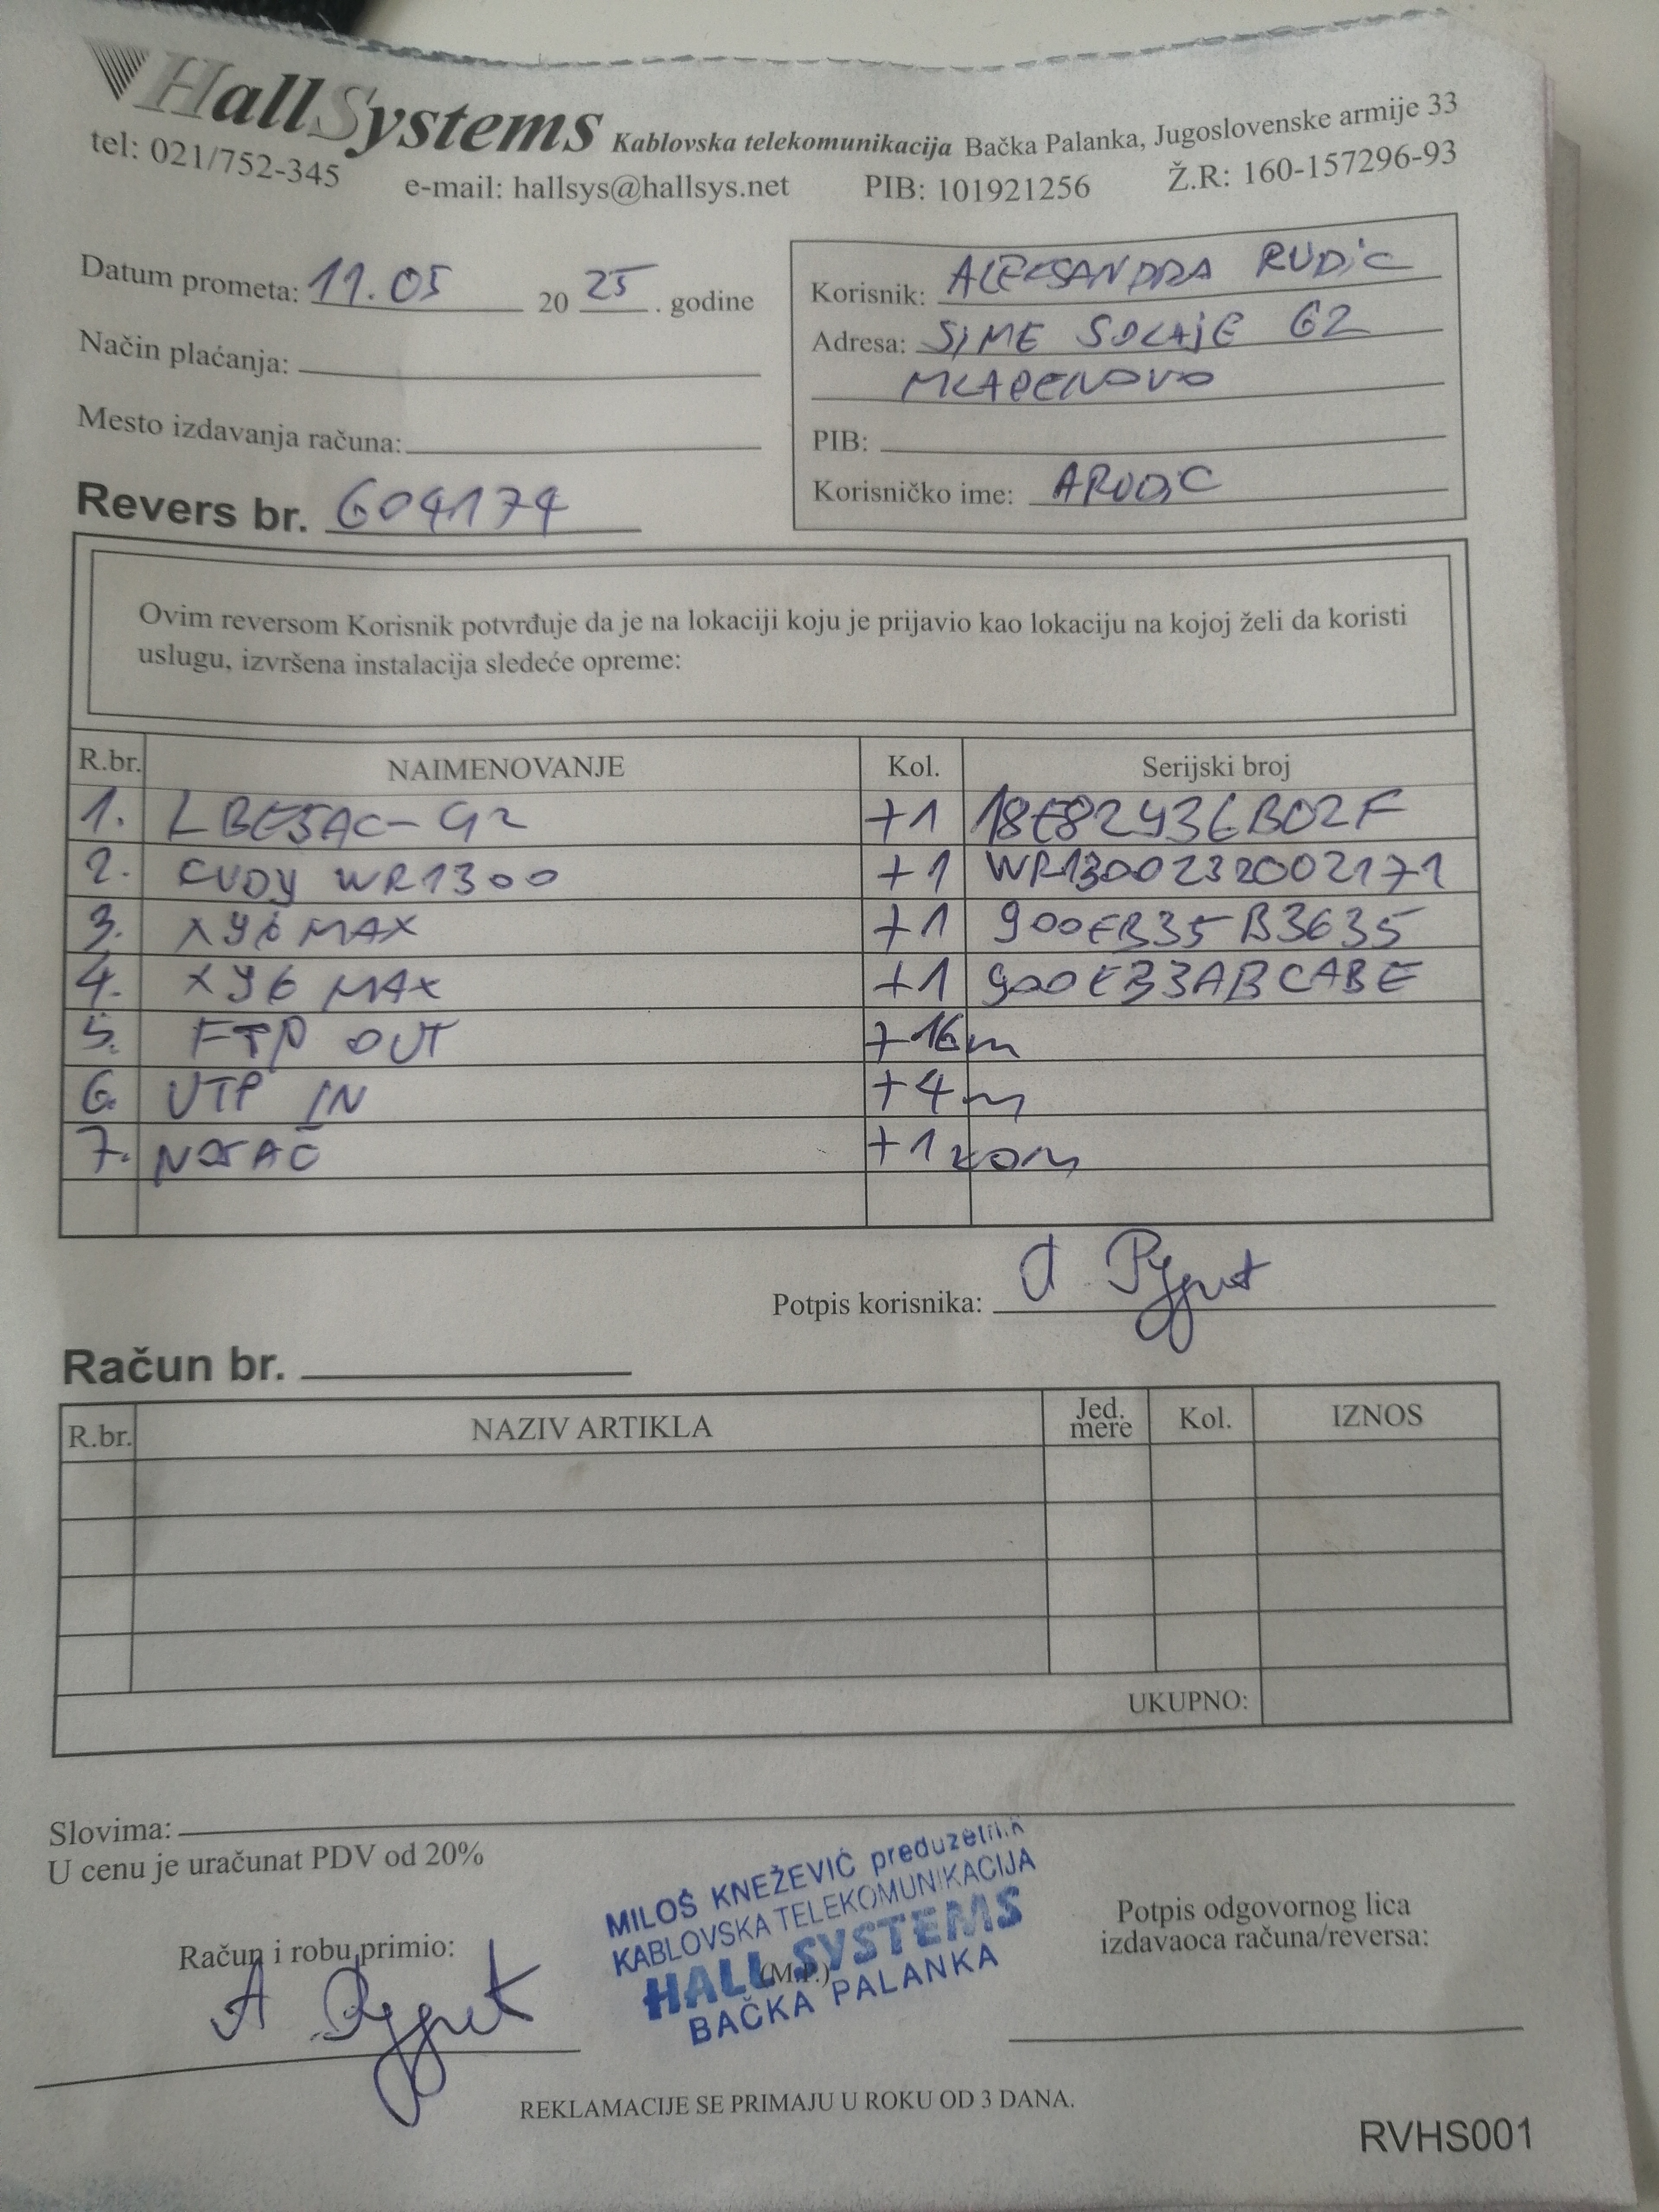 HallSystems Kablovska telekomunikacija Bačka Palanka, Jugoslovenske armije 33
tel: 021/752-345 e-mail: hallsys@hallsys.net PIB: 101921256 Ž.R: 160-157296-93
Datum prometa: 11.05 2025. godine
Način plaćanja:
Mesto izdavanja računa:
Revers br. 604174
Korisnik: ALEKSANDRA RUDIC
Adresa: SIME SOLAJE 62
MLADENOVO
PIB:
Korisničko ime: ARUDIC
Ovim reversom Korisnik potvrđuje da je na lokaciji koju je prijavio kao lokaciju na kojoj želi da koristi
uslugu, izvršena instalacija sledeće opreme:
R.br. NAIMENOVANJE Kol. Serijski broj
1. LBE5AC-G2 +1 18E82936B02F
2. CUDY WR1300 +1 WR1300232002171
3. XY6 MAX +1 900EB35B3635
4. XY6 MAX +1 900EB3ABCABE
5. FTP OUT +16m
6. UTP IN +4m
7. NOSAČ +1 kom
Potpis korisnika:
Račun br.
R.br. NAZIV ARTIKLA Jed. mere Kol. IZNOS
UKUPNO:
Slovima:
U cenu je uračunat PDV od 20%
MILOŠ KNEŽEVIĆ preduzetnik
KABLOVSKA TELEKOMUNIKACIJA
HALL SYSTEMS
BAČKA PALANKA
(M.P.)
Račun i robu primio:
Potpis odgovornog lica
izdavaoca računa/reversa:
REKLAMACIJE SE PRIMAJU U ROKU OD 3 DANA.
RVHS001